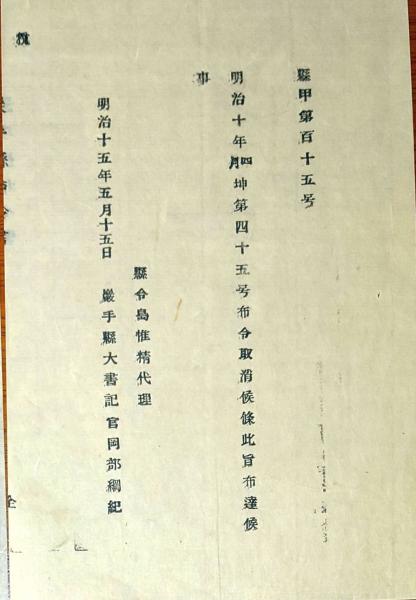 縣甲第百十五号
明治十年四月坤第四十五号布令取消候條此旨布達候
事
縣令島惟精代理
明治十五年五月十五日 巖手縣大書記官岡部綱紀
全